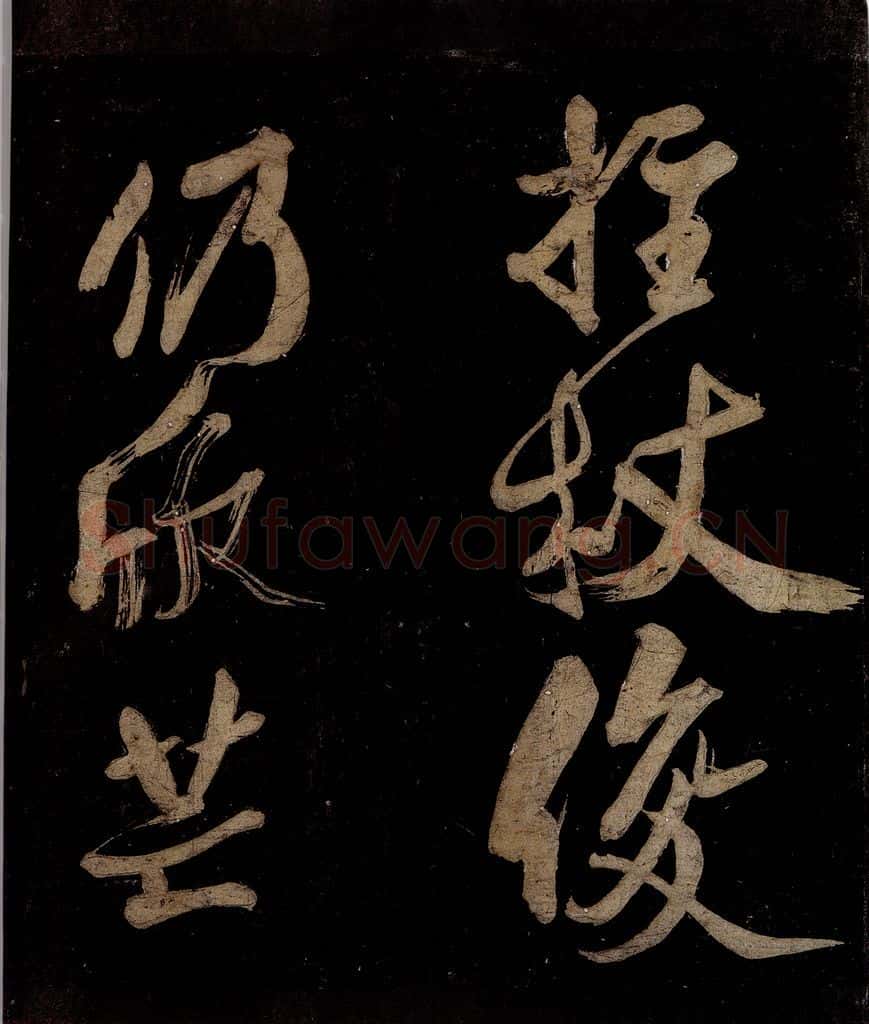 拄杖俊
仍欣芒
Shufawang.CN